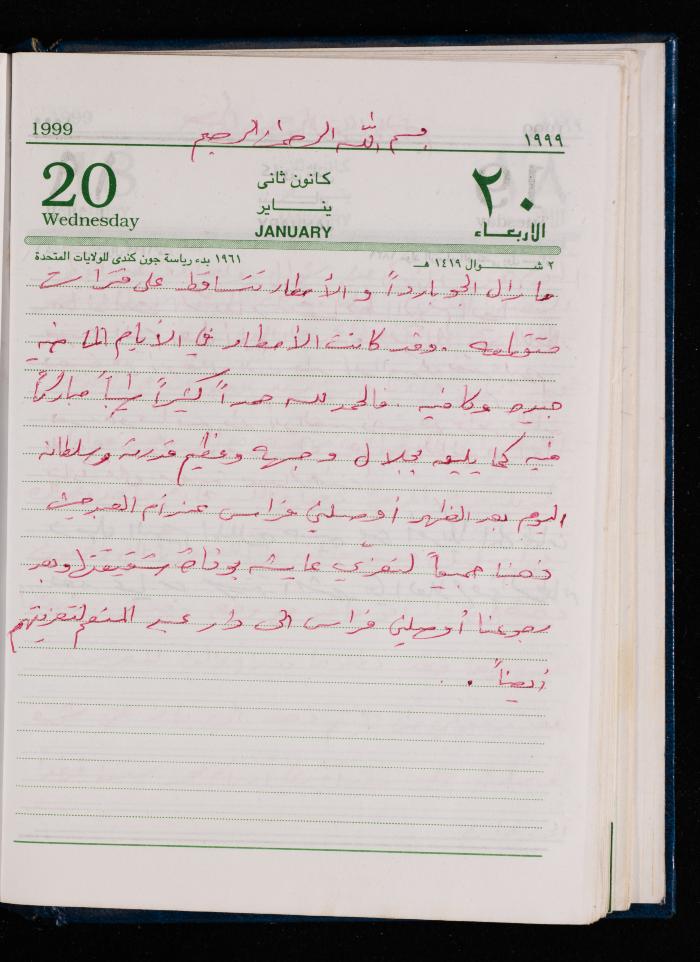 بسم الله الرحمن الرحيم
1999 ١٩٩٩
20 كانون ثانى ٢٠
يناير
Wednesday JANUARY الاربعاء
٢ شوال ١٤١٩ هـ ١٩٦١ بدء رياسة جون كندى للولايات المتحدة
ما زال الجو بارداً والأمطار تتساقط على فترات
متقطعه . وقد كانت الأمطار في الأيام الماضيه
جيده وكافيه . فالحمد لله حمداً كثيراً طيباً مباركاً
فيه كما يليق بجلال وجهه وعظيم قدرته وسلطانه
اليوم بعد الظهر أوصلني فراس عند أم العبد حيث
ذهبنا جميعاً لنعزي عايشه بوفاة شقيقتها وبعد
رجوعنا أوصلني فراس الى دار عبد المنعم لتعزيتهم
أيضاً .